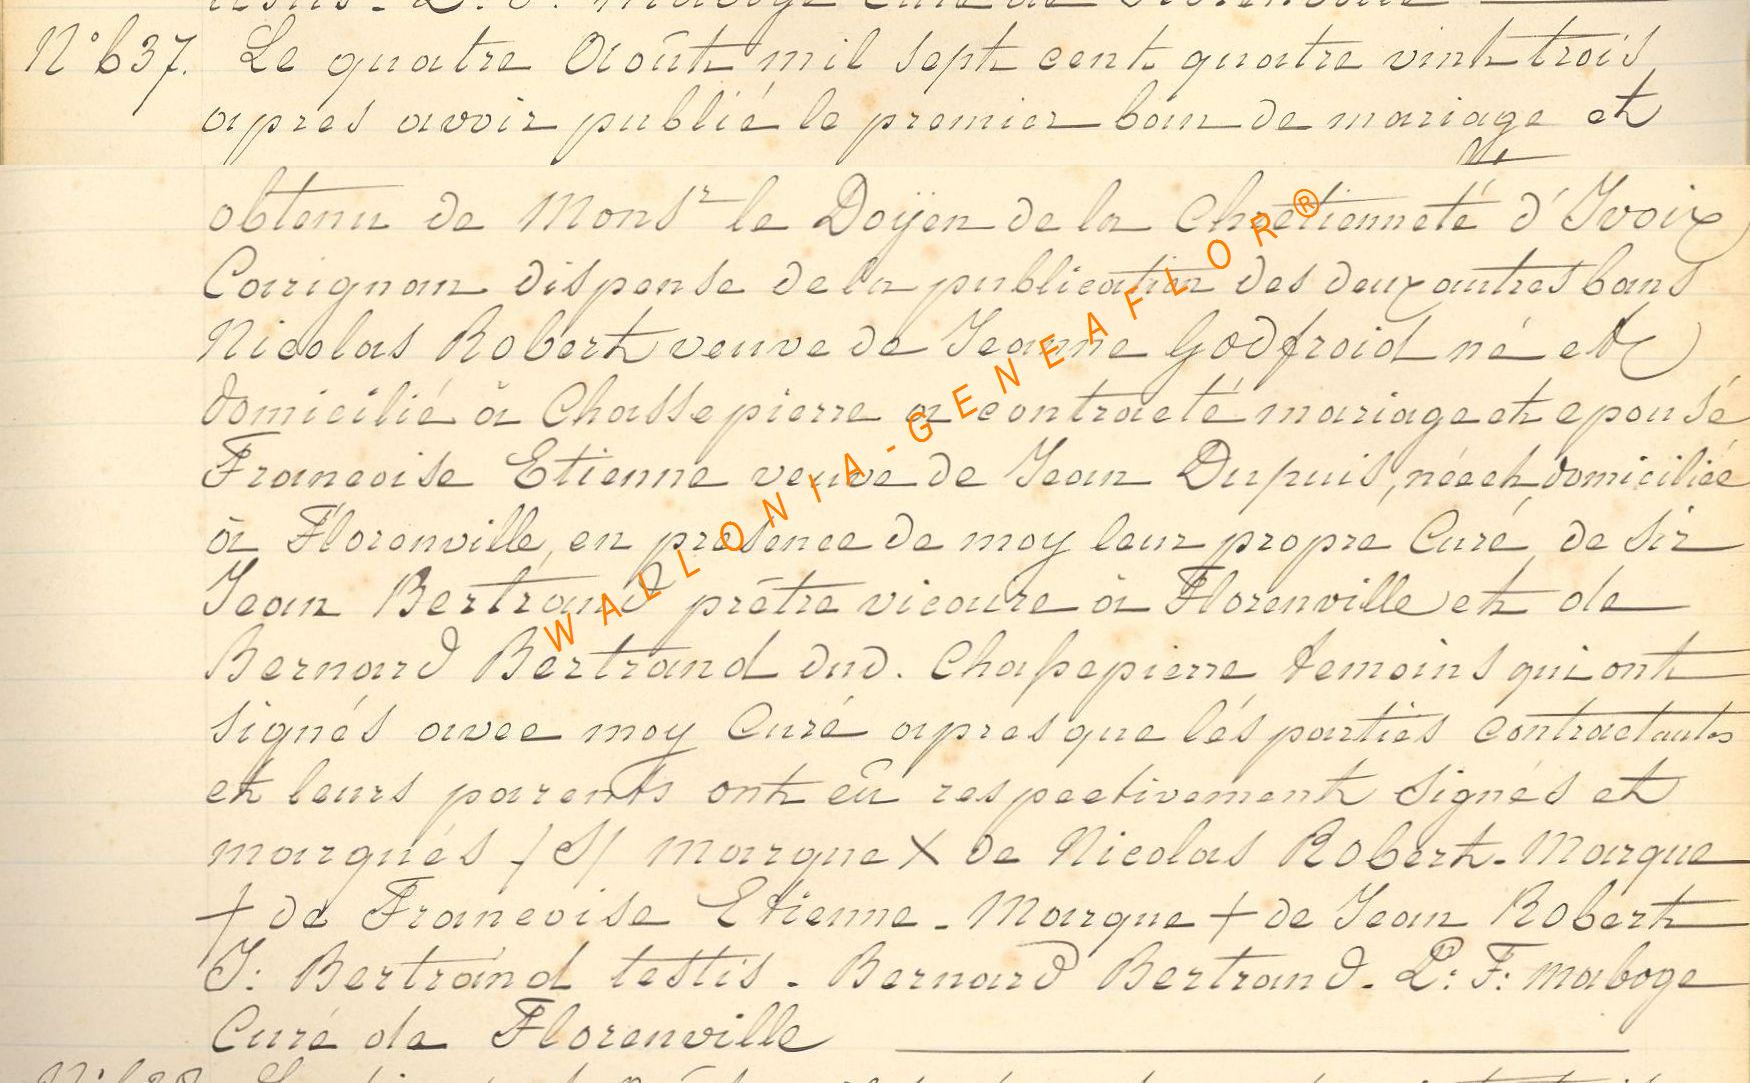 N° 637. Le quatre Août mil sept cent quatre vint trois
apres avoir publié le premier ban de mariage et
obtenu de Monsr le Doÿen de la Chretienneté d'Ivoix
Carignan dispense de la publication des deux autres bans
Nicolas Robert veuve de Jeanne Godfroid né et
domicilié à Chassepierre a contracté mariage et epousé
Francoise Etienne veuve de Jean Dupuis, née et domiciliée
à Florenville, en presence de moy leur propre Curé, de sir
Jean Bertrand prêtre vicaire à Florenville et de
Bernard Bertrand dud. Chaſsepierre temoins qui ont
signés avec moy Curé apres que lés parties contractantes
et leurs parents ont eû respectivement signés et
marqués /S/ marque X de Nicolas Robert - Marque
+ de Francoise Etienne - Marque + de Jean Robert
J: Bertrand testis - Bernard Bertrand - L: F: maboge
Curé de Florenville
WALLONIA-GENEAFLOR®